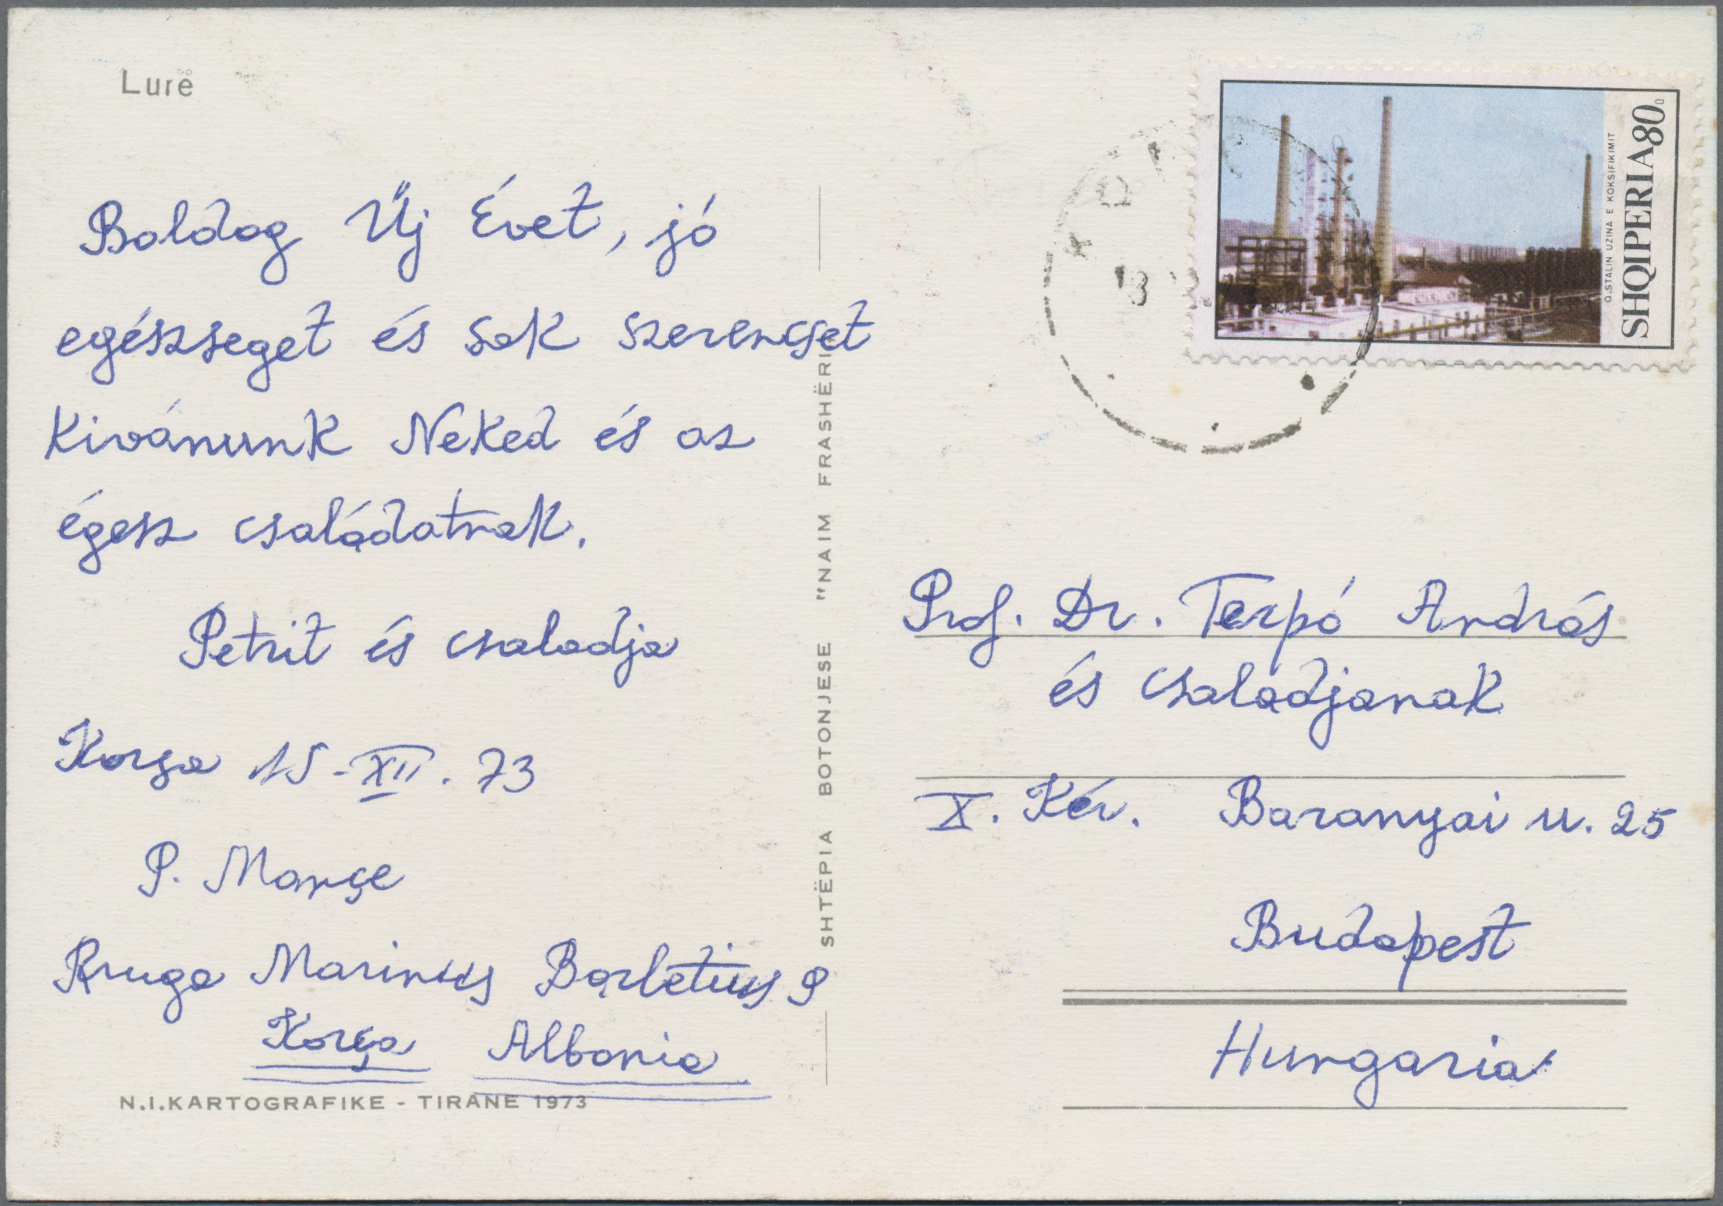 Lurë
Boldog Új Évet, jó
egészseget és sok szerencset
Kivánunk Neked és az
égesz családatnak.
Petrit és csaladja
Korça 15-XII. 73
P. Marçe
Rruga Marinus Barletius 9
Korça Albania
N.I.KARTOGRAFIKE - TIRANE 1973
SHTËPIA BOTONJESE "NAIM FRASHËRI
SHQIPERIA 80
Q.STALIN UZINA E KOKSIFIKIMIT
Prof. Dr. Terpó András
és csaladjanak
X. Kér. Baranyai u. 25
Budapest
Hungaria